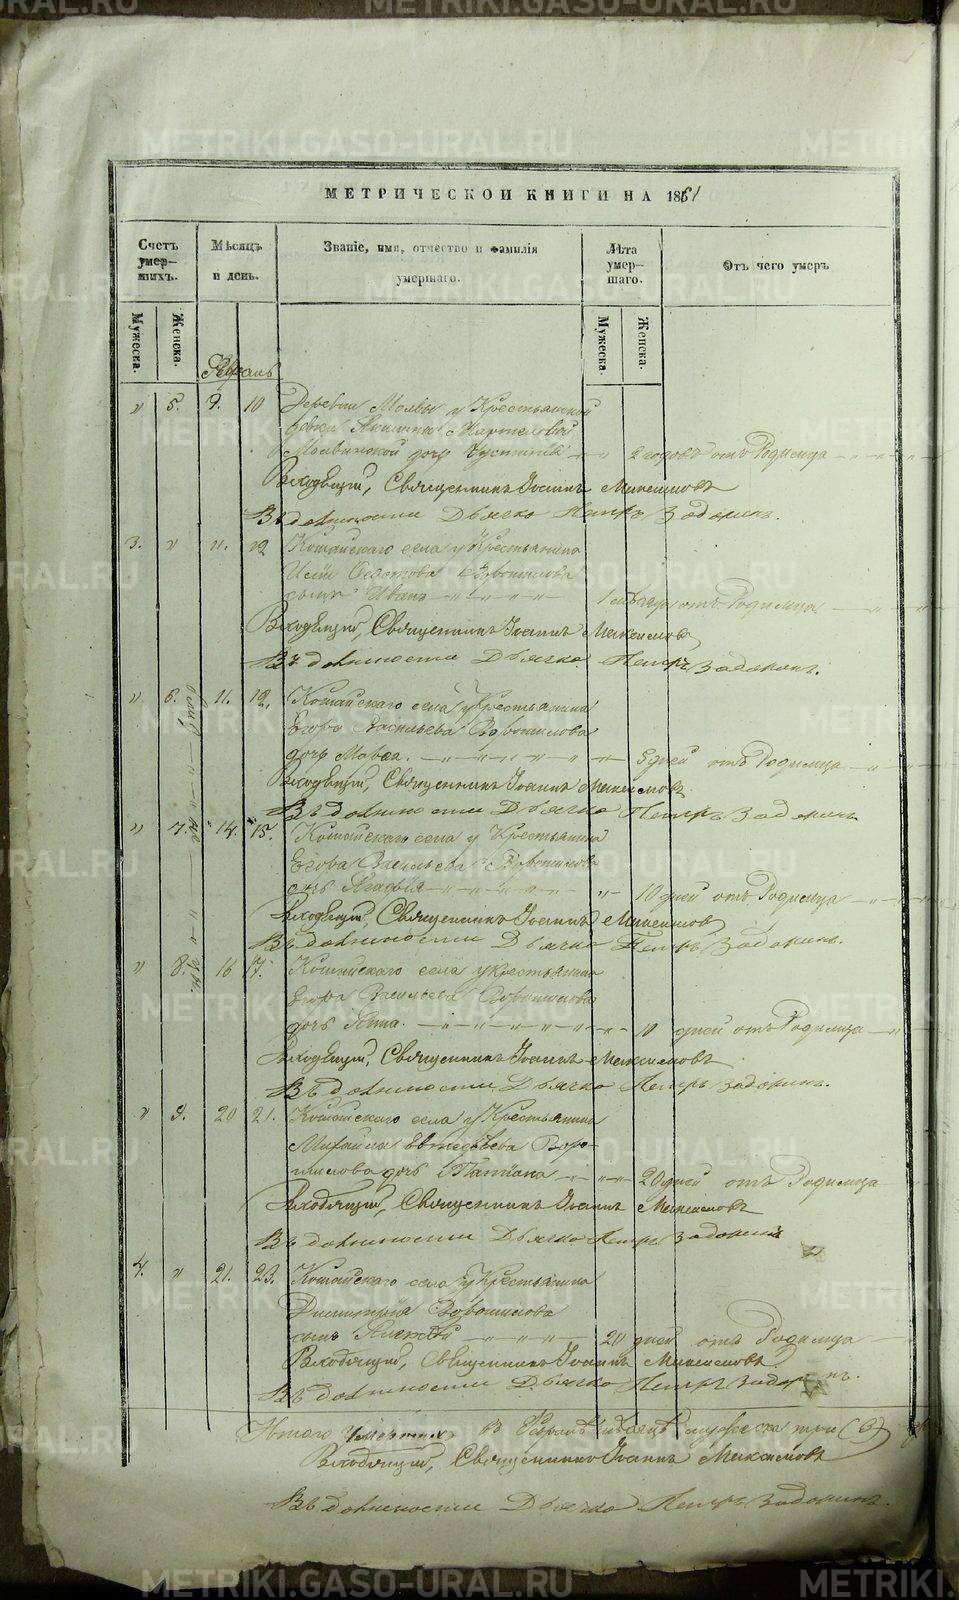 METRIKI.GASO-URAL.RU
МЕТРИЧЕСКОЙ КНИГИ НА 1861
Счетъ умер-шихъ.
Мѣсяцъ и день.
Званіе, имя, отчество и фамилія умершаго.
Лѣта умер-шаго.
Отъ чего умеръ
Мужеска. Женска. Мужеска. Женска.
Февраль
" 5. 9. 10 Деревни Молвы у Крестьянской
Молвинской дочь " " 2 годовъ отъ Родимца
Входящий, Священникъ Іоаннъ Максимовъ
Въ должности Дьячка Петръ Задоринъ.
3. " 11. 12 Кошайскаго села у Крестьянина
Воротилова
сынъ Иванъ " " " 1 мѣсяц отъ Родимца
Входящий, Священникъ Іоаннъ Максимовъ
Въ должности Дьячка Петръ Задоринъ.
" 6. 11. 12. Кошайскаго села у Крестьянина
Егора Васильева Воротилова
дочь Марѳа. " " " 5 дней отъ Родимца
Входящий, Священникъ Іоаннъ Максимовъ
Въ должности Дьячка Петръ Задоринъ
" 7. 14. 15. Кошайскаго села у Крестьянина
Егора Васильева Воротилова
дочь Агафія " " " 10 дней отъ Родимца
Входящий, Священникъ Іоаннъ Максимовъ
Въ должности Дьячка Петръ Задоринъ.
" 8. 16 17. Кошайскаго села у Крестьянина
Егора Васильева Воротилова
дочь Анна. " " " 11 дней отъ Родимца
Входящий, Священникъ Іоаннъ Максимовъ
Въ должности Дьячка Петръ Задоринъ.
" 9. 20 21. Кошайскаго села у Крестьянина
Михаила Воро-
тилова дочь Татіана " " 20 дней отъ Родимца
Входящий, Священникъ Іоаннъ Максимовъ
Въ должности Дьячка Петръ Задоринъ
4. " 21. 23. Кошайскаго села у Крестьянина
Димитрія Воротилова
сынъ Алексѣй " " " 20 дней отъ Родимца
Входящий, Священникъ Іоаннъ Максимовъ
Въ должности Дьячка Петръ Задоринъ.
Итого умершихъ въ Февралѣ мѣсяцѣ мужеска три (3)
Входящий, Священникъ Іоаннъ Максимовъ
Въ должности Дьячка Петръ Задоринъ.